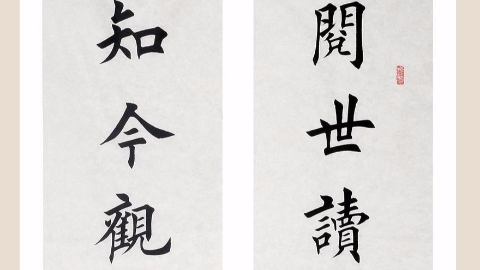 閱世讀
知今觀